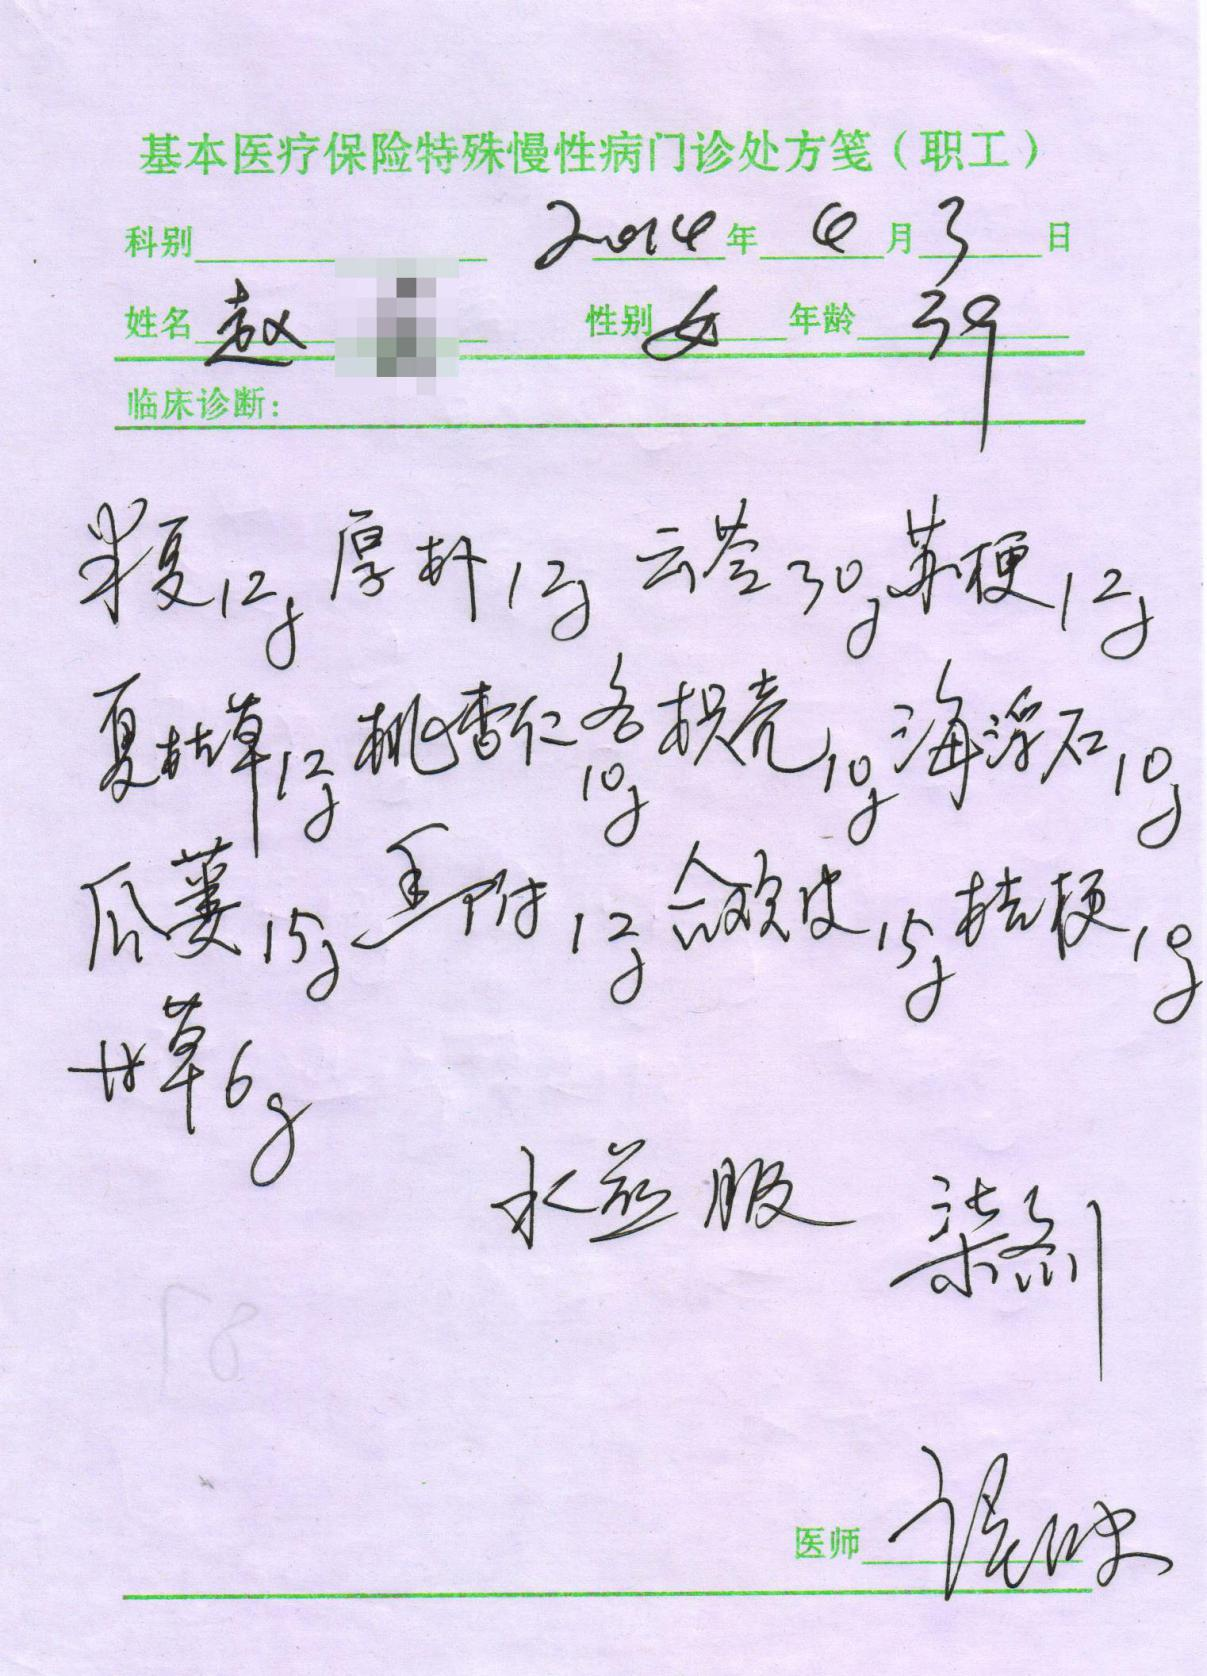 基本医疗保险特殊慢性病门诊处方笺（职工）
科别 2014年 4月 3日
姓名 赵 性别 女 年龄 39
临床诊断：
半夏12g 厚朴12g 云苓30g 苏梗12g
夏枯草12g 桃杏仁各10g 枳壳10g 海浮石10g
瓜蒌15g 香附12g 合欢皮15g 桔梗10g
甘草6g
水煎服 柒剂
医师